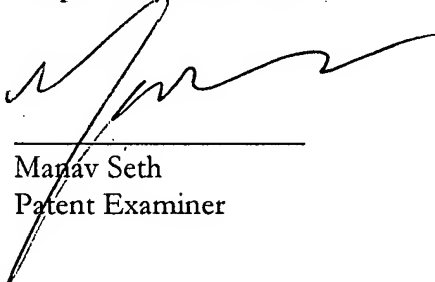 Manav Seth
Patent Examiner